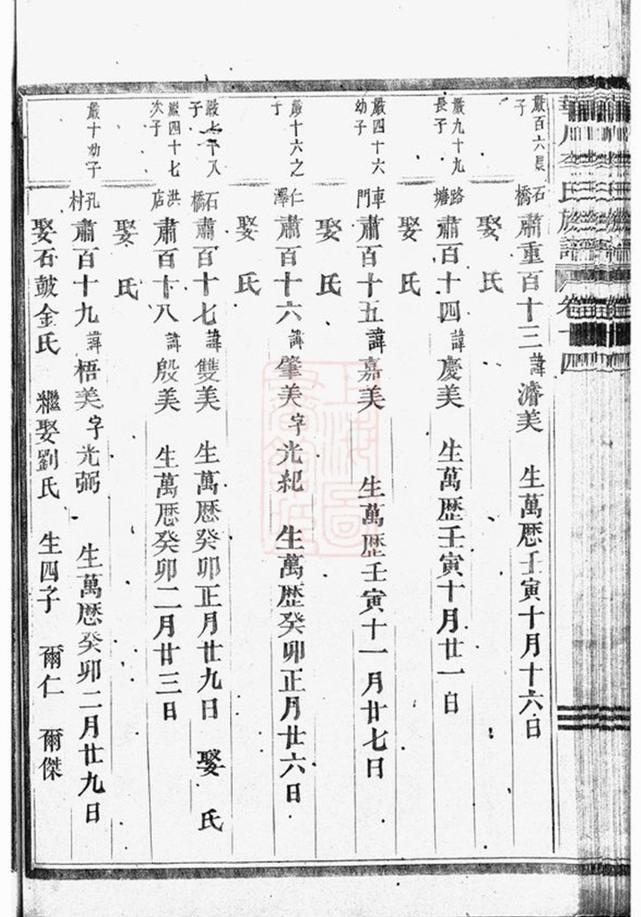 嚴百六長子
石橋 肅重百十三 諱濬美 生萬歷壬寅十月十六日
娶 氏
嚴九十九長子
路塘 肅百十四 諱慶美 生萬歷壬寅十月廿一日
娶 氏
嚴四十六幼子
車門 肅百十五 諱嘉美 生萬歷壬寅十一月廿七日
娶 氏
嚴十六之子
仁澤 肅百十六 諱肇美 字光紀 生萬歷癸卯正月廿六日
娶 氏
子
石橋 肅百十七 諱雙美 生萬歷癸卯正月廿九日 娶 氏
嚴四十七次子
洪店 肅百十八 諱殷美 生萬歷癸卯二月廿三日
娶 氏
嚴十幼子
孔村 肅百十九 諱梧美 字光弼 生萬歷癸卯二月廿九日
娶石鼓金氏 繼娶劉氏 生四子 爾仁 爾傑